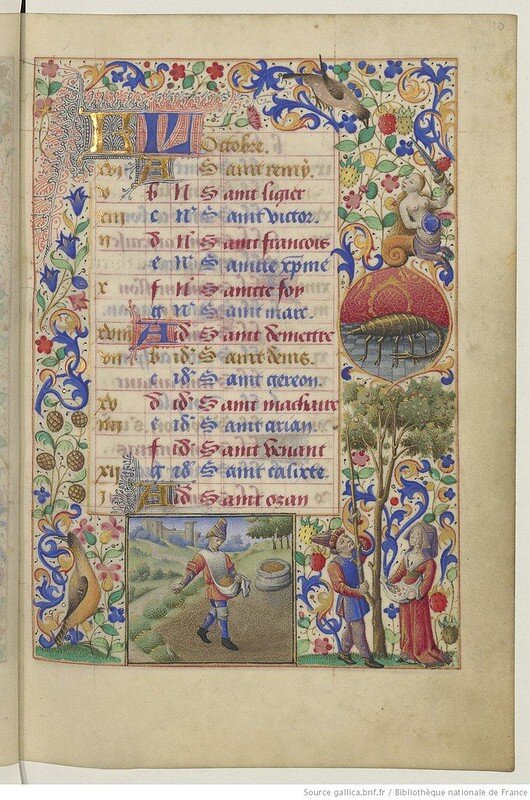 10
KL
Octobre.
xvi A Saint remy.
v b N Saint ligier
xiii c N Saint victor
ii d N Saint francois
e N Saincte xpine
x f N Saincte foy
g N Saint marc
xviii A id Saint demettre
vii b id Saint denis.
c id Saint gereon.
xv d id Saint machaire
iiii e id Saint
f id Saint venant
xii g id Saint calixte
i A id Saint ozan
Source gallica.bnf.fr / Bibliothèque nationale de France